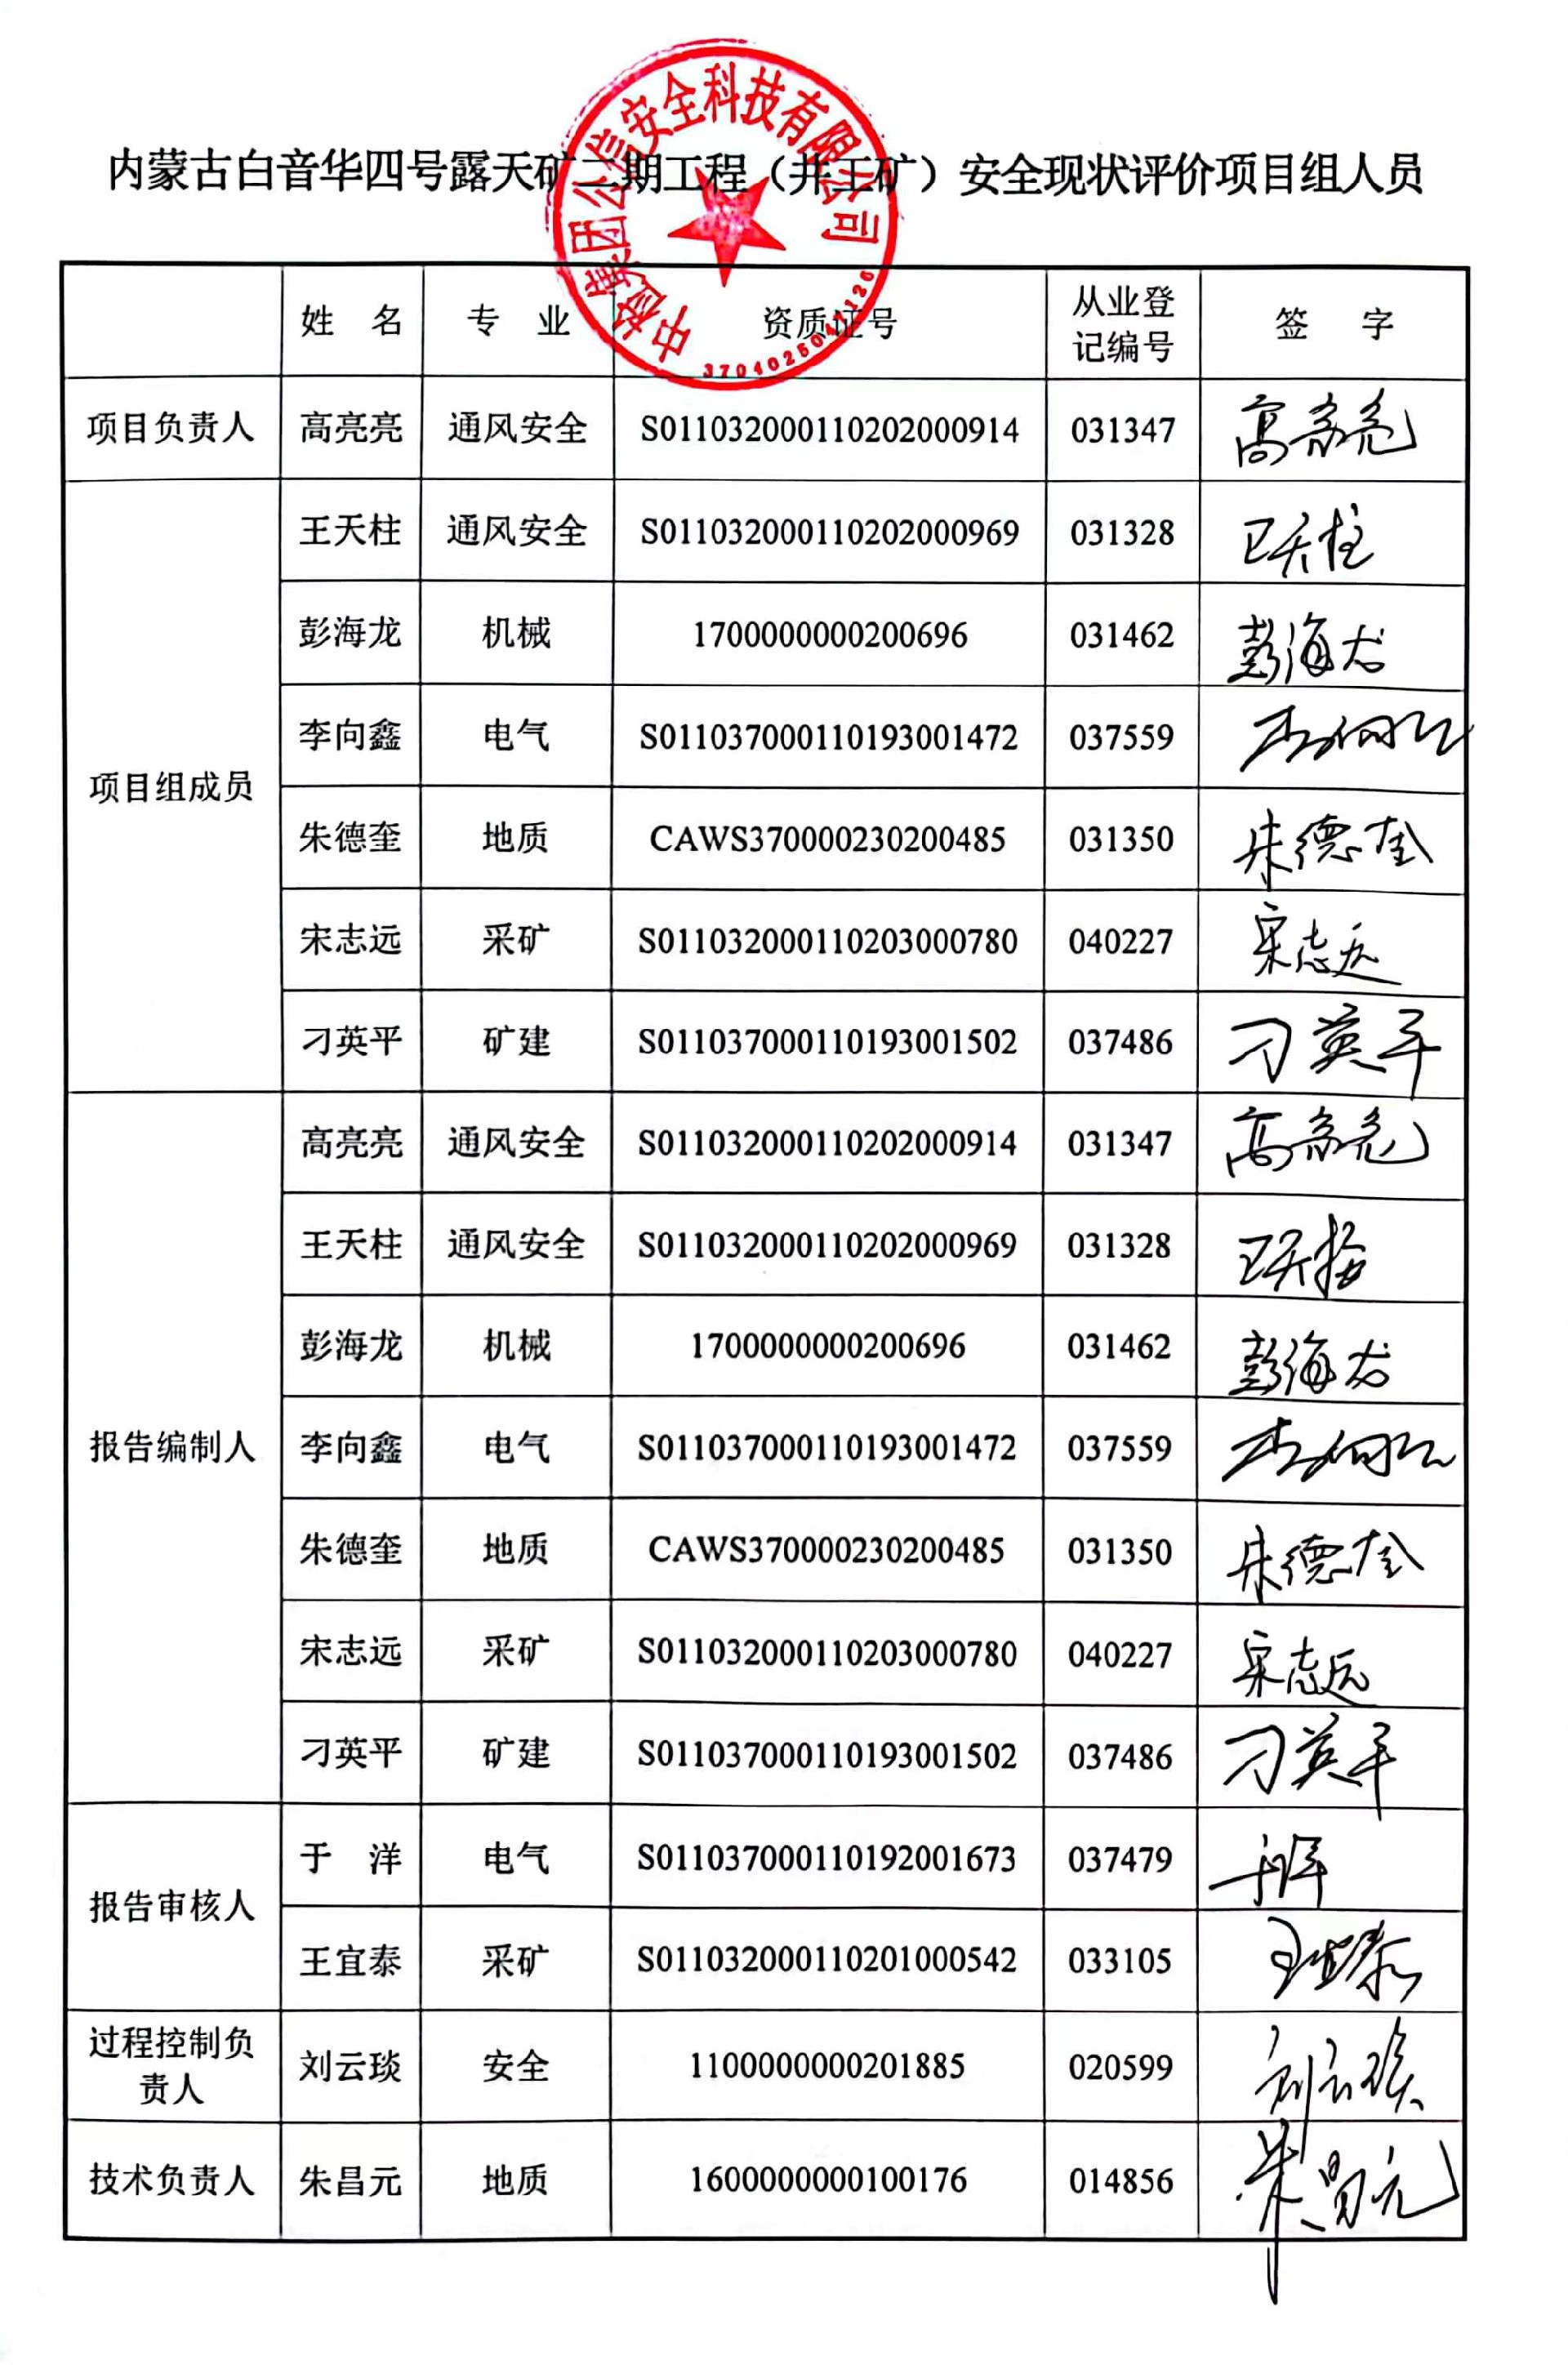 中检集团公信安全科技有限公司
内蒙古白音华四号露天矿二期工程（井工矿）安全现状评价项目组人员
姓 名 专 业 资质证号 从业登记编号 签 字
项目负责人 高亮亮 通风安全 S011032000110202000914 031347 高亮亮
项目组成员
王天柱 通风安全 S011032000110202000969 031328 王天柱
彭海龙 机械 1700000000200696 031462 彭海龙
李向鑫 电气 S011037000110193001472 037559 李向鑫
朱德奎 地质 CAWS370000230200485 031350 朱德奎
宋志远 采矿 S011032000110203000780 040227 宋志远
刁英平 矿建 S011037000110193001502 037486 刁英平
报告编制人
高亮亮 通风安全 S011032000110202000914 031347 高亮亮
王天柱 通风安全 S011032000110202000969 031328 王天柱
彭海龙 机械 1700000000200696 031462 彭海龙
李向鑫 电气 S011037000110193001472 037559 李向鑫
朱德奎 地质 CAWS370000230200485 031350 朱德奎
宋志远 采矿 S011032000110203000780 040227 宋志远
刁英平 矿建 S011037000110193001502 037486 刁英平
报告审核人
于 洋 电气 S011037000110192001673 037479 于洋
王宜泰 采矿 S011032000110201000542 033105 王宜泰
过程控制负责人 刘云琰 安全 1100000000201885 020599 刘云琰
技术负责人 朱昌元 地质 1600000000100176 014856 朱昌元